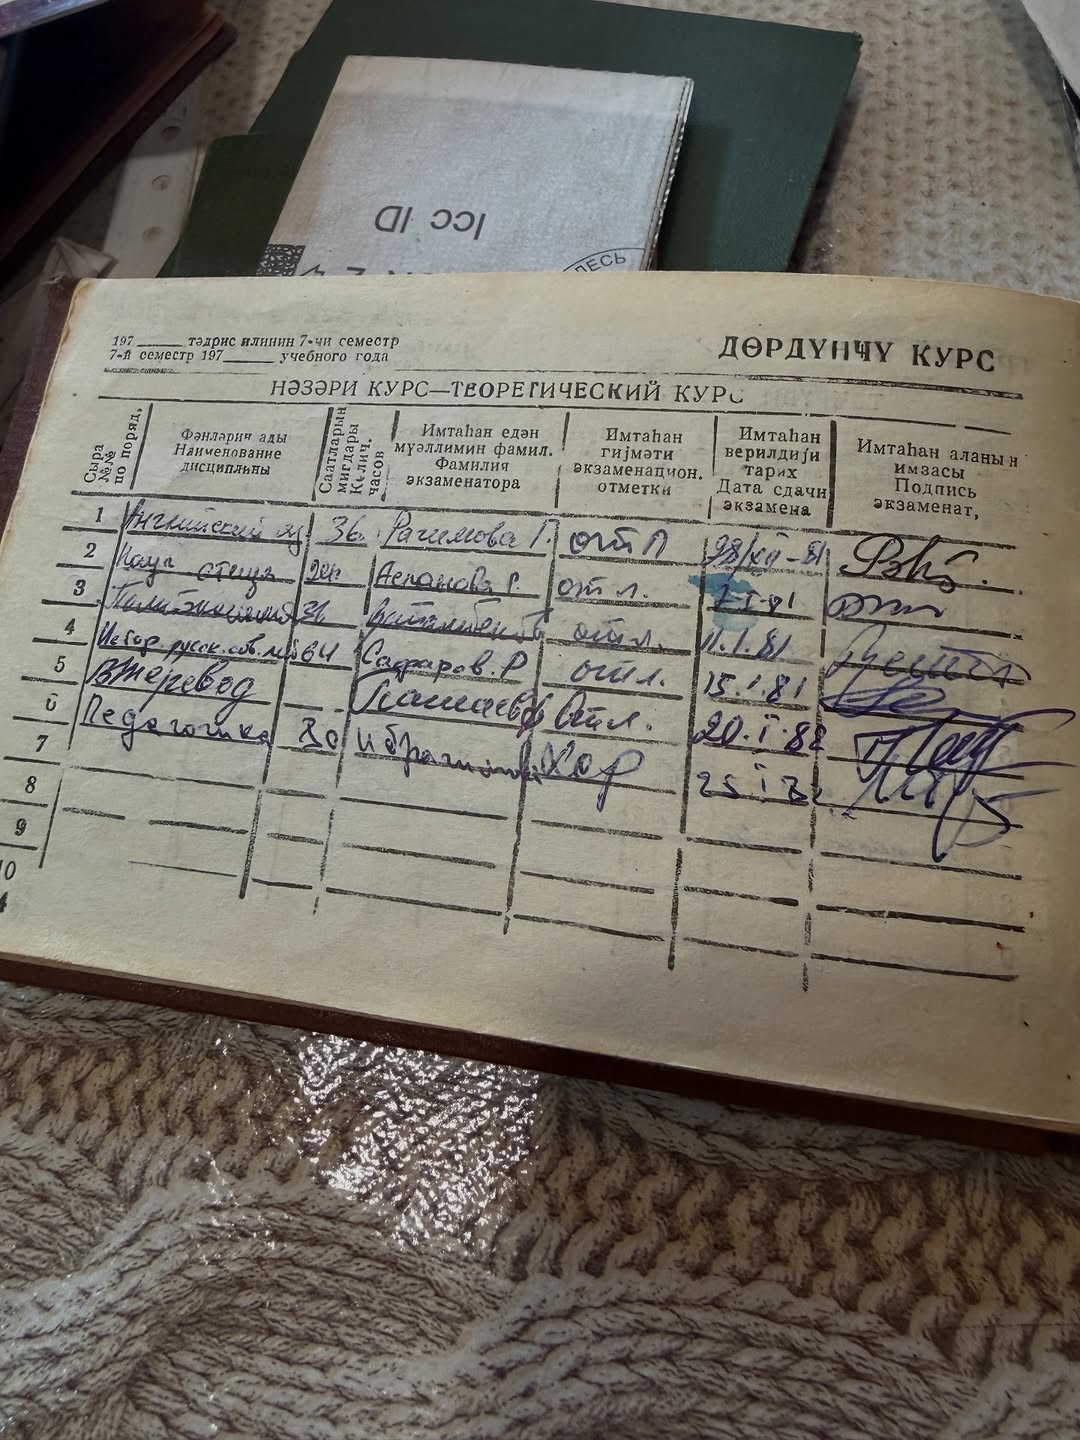 Icc ID
ДЕСЬ
197 тәдрис илинин 7-чи семестр
7-й семестр 197 учебного года
ДӨРДҮНҸҮ КУРС
НӘЗӘРИ КУРС—ТЕОРЕТИЧЕСКИЙ КУРС
Сыра №№ по поряд.
Фәнләрин ады Наименование дисциплины
Саатларын мигдары Колич. часов
Имтаһан едән мүәллимин фамил. Фамилия экзаменатора
Имтаһан гијмәти экзаменацион. отметки
Имтаһан верилдији тарих Дата сдачи экзамена
Имтаһан аланын имзасы Подпись экзаменат,
1 Английский яз 36 Рагимова Г. отл 28/XII-81
2 Науч 7.I.81 отл.
3 Политэкономия 36 отл. 11.1.81
4 Истор. русск. 64 Сафаров. Р отл. 15.1.81
5 Перевод отл. 20.I.82
6 Педагогика 30 Ибрагимова Хор 25 I 82
7
8
9
10